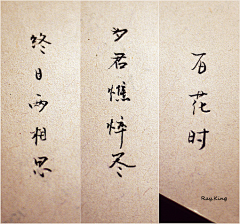 終日两相思
为君憔悴尽
百花时
Ray.King